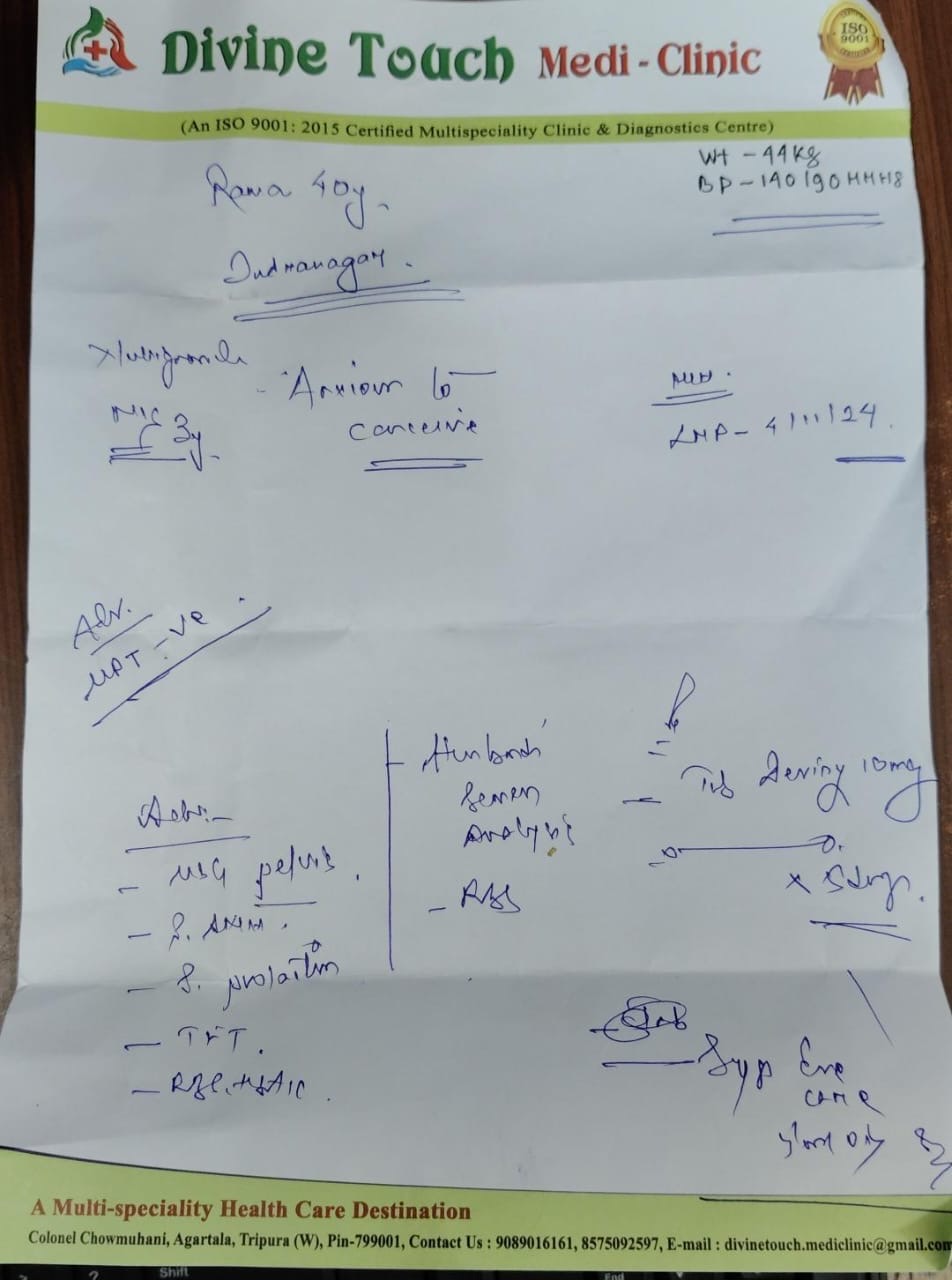 ISO
9001
Divine Touch Medi - Clinic
(An ISO 9001: 2015 Certified Multispeciality Clinic & Diagnostics Centre)
Wt - 44Kg
BP - 140/90 MMHg
40y.
Indranagar.
Anxious to
conceive
3y.
LMP - 4/11/24.
Adv.
UPT -ve.
Adv:-
- USG pelvis.
- S. AMH.
- S. prolactin
- TFT.
- HbA1c.
- Husband
Semen
Analysis
- RBS
Tab 10mg
x 5 days.
Tab
Syp Eve
care
A Multi-speciality Health Care Destination
Colonel Chowmuhani, Agartala, Tripura (W), Pin-799001, Contact Us : 9089016161, 8575092597, E-mail : divinetouch.mediclinic@gmail.com
Shift
End